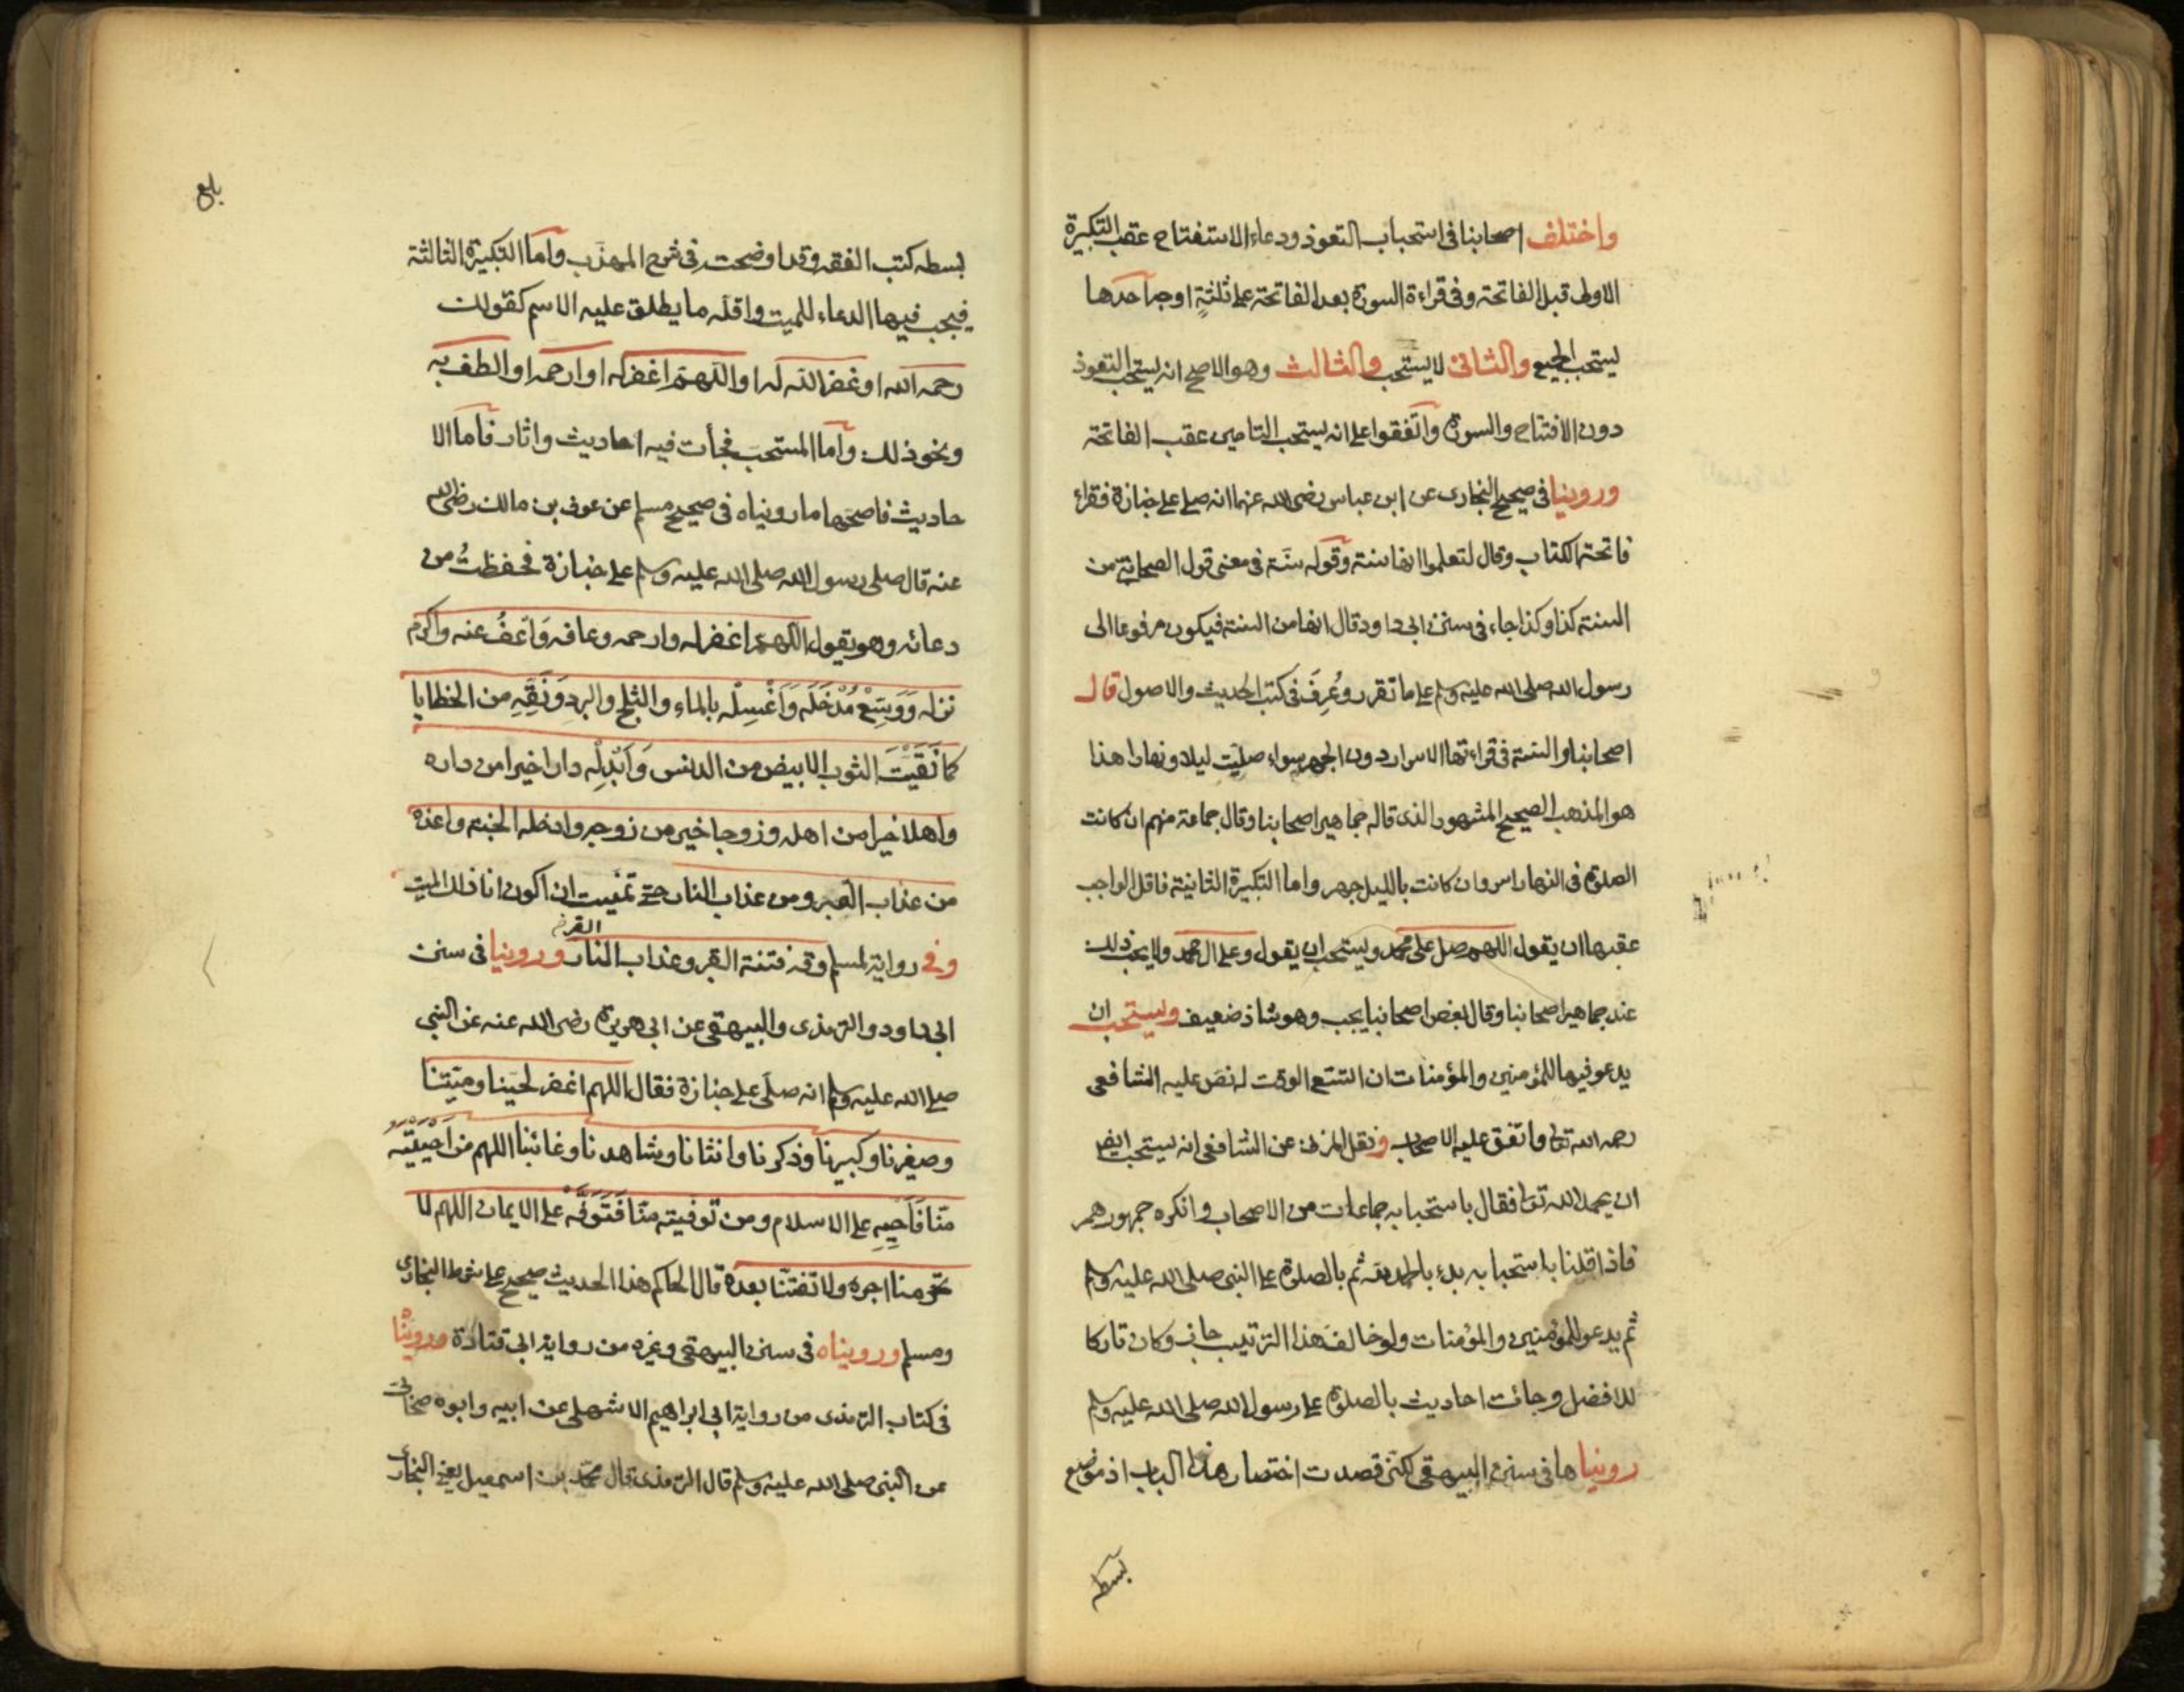 واختلف اصحابنا فى استحباب التعوذ ودعاء الاستفتاح عقب التكبيرة
الاولى قبل الفاتحة وفى قراءة السورة بعد الفاتحة على ثلثة اوجه احدها
يستحب الجميع والثانى لا يستحب والثالث وهو الاصح انه يستحب التعوذ
دون الافتتاح والسورة واتفقوا على انه يستحب التامين عقب الفاتحة
وروينا فى صحيح البخارى عن ابن عباس رضى الله عنهما انه صلى على جنازة فقراء
فاتحة الكتاب وقال لتعلموا انها سنة وقوله سنة فى معنى قول الصحابة من
السنة كذا وكذا جاء فى سنن ابى داود قال انها من السنة فيكون مرفوعا الى
رسول الله صلى الله عليه وسلم على ما تقرر وعُرِفَ فى كتب الحديث والاصول قال
اصحابنا والسنة فى قراءتها الاسرار دون الجهر سواء صليت ليلا ونهارا هذا
هو المذهب الصحيح المشهور الذى قاله جماهير اصحابنا وقال جماعة منهم ان كانت
الصلوة فى النهار اسر وان كانت بالليل جهر واما التكبيرة الثانية فاقل الواجب
عقبها ان يقول اللهم صل على محمد ويستحب ان يقول وعلى ال محمد ولا يجب ذلك
عند جماهير اصحابنا وقال بعض اصحابنا يجب وهو شاذ ضعيف ويستحب ان
يدعو فيها للمؤمنين والمؤمنات ان اتسع الوقت له نص عليه الشافعى
رحمه الله تعا واتفق عليه الاصحاب ونقل المزنى عن الشافعى انه يستحب ايض
ان يحمد الله تعا فقال باستحبابه جماعات من الاصحاب وانكره جمهورهم
فاذا قلنا باستحبابه بدء بالحمد لله ثم بالصلوة على النبى صلى الله عليه وسلم
ثم يدعو للمؤمنين والمؤمنات ولو خالف هذا الترتيب جاز وكان تاركا
للافضل وجائت احاديث بالصلوة على رسول الله صلى الله عليه وسلم
رويناها فى سنن البيهقى لكنى قصدت اختصار هذا الباب اذ موضع
بسطه
بلغ
بسطه كتب الفقه وقد اوضحته فى شرح المهذب واما التكبيرة الثالثة
فيجب فيها الدعاء للميت واقله ما يطلق عليه الاسم كقولك
رحمه الله او غفر الله له او اللهم اغفر له او ارحمه او الطف به
ونحو ذلك واما المستحب فجأت فيه احاديث واثار فاما الا
حاديث فاصحها ما رويناه فى صحيح مسلم عن عوف بن مالك رضى الله
عنه قال صلى رسول الله صلى الله عليه وسلم على جنازة فحفظتُ من
دعائه وهو يقول اللهم اغفر له وارحمه وعافه وَاعفُ عنه واكرم
نزله وَوَسِّعْ مُدْخَلَه وَاَغْسِلْه بالماء والثلج والبرد وَنَقِّهِ من الخطايا
كما نَقَّيْتَ الثوب الابيض من الدنس وَاَبْدِلْه دارا خيرا من داره
واهلا خيرا من اهله وزوجا خير من زوجه وادخله الجنة واعذه
من عذاب القبر ومن عذاب النار حتى تمنيت ان اكون انا ذلك الميت
وفى رواية لمسلم وقه فتنة القبر وعذاب النار وروينا فى سنن
ابى داود والترمذى والبيهقى عن ابى هريرة رضى الله عنه عن النبى
صلى الله عليه وسلم انه صلى على جنازة فقال اللهم اغفر لحينا وميتنا
وصغيرنا وكبيرنا وذكرنا وانثانا وشاهدنا وغائبنا اللهم من اَحْيَيْتَه
منا فَاَحْيِهِ على الاسلام ومن توفيته منا فَتَوَفَّه على الايمان اللهم لا
تحرمنا اجره ولا تفتنا بعده قال الحاكم هذا الحديث صحيح على شرط البخارى
ومسلم ورويناه فى سنن البيهقى وغيره من رواية ابى قتادة وروينا
فى كتاب الترمذى من رواية ابى ابراهيم الاشهلى عن ابيه وابوه صحابى
عن النبى صلى الله عليه وسلم قال الترمذى قال محمد بن اسمعيل يعنى البخارى